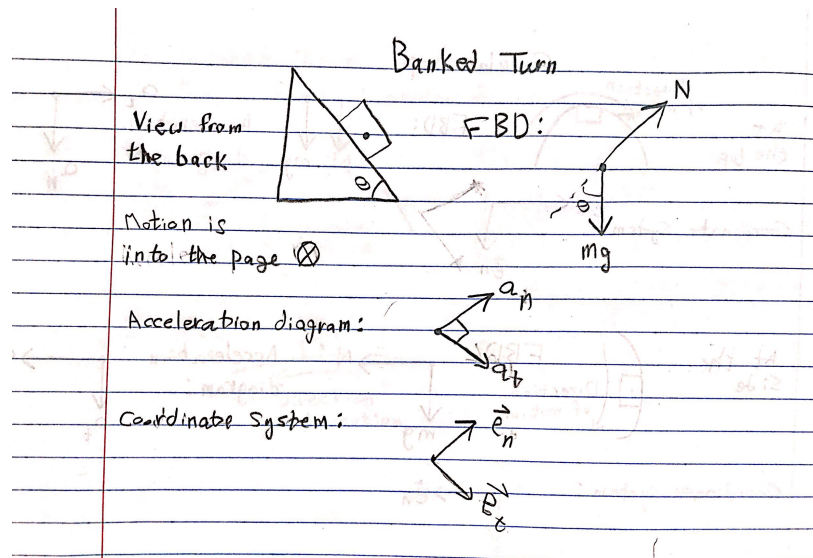 Banked Turn
View from
the back
θ
FBD:
N
θ
mg
Motion is
into the page ⊗
Acceleration diagram:
a_n
a_t
Coordinate System:
e⃗_n
e⃗_t